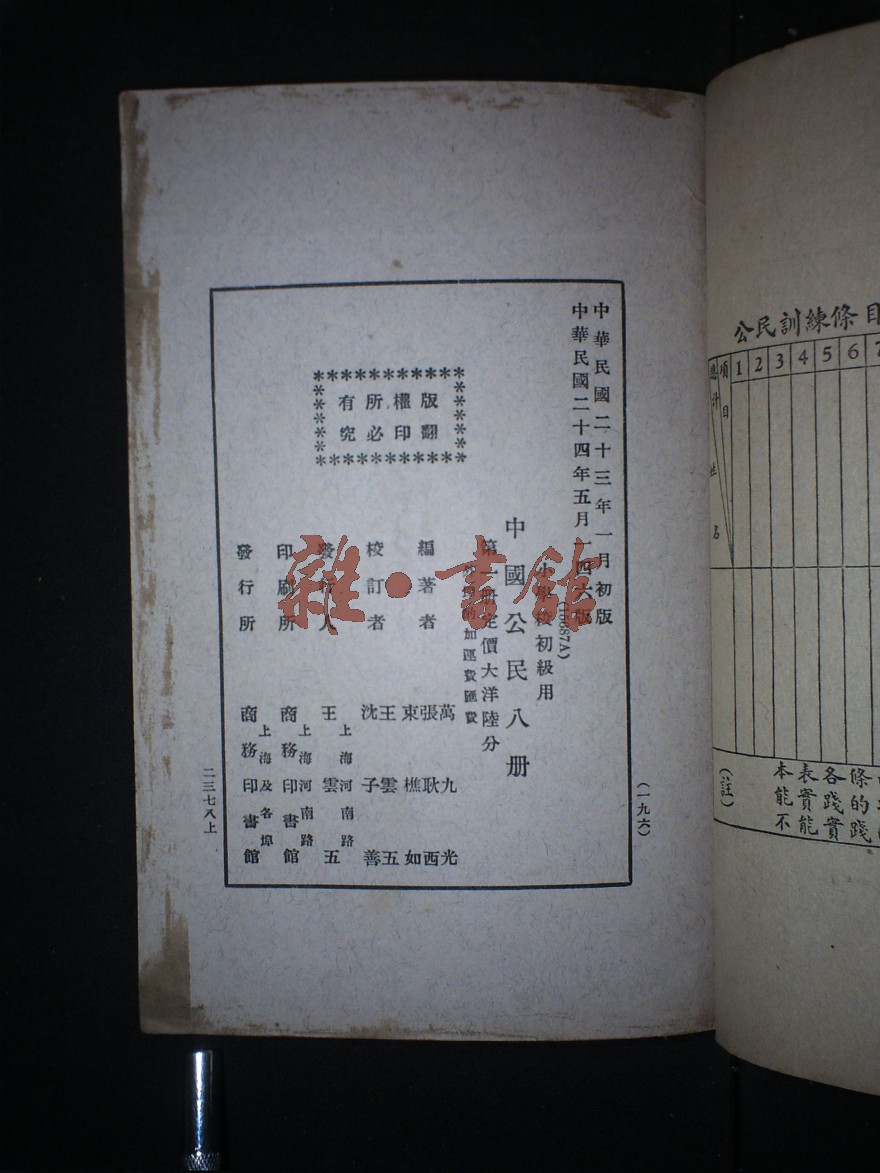 公民訓練條目
項目
總計
1 2 3 4 5 6 7
(註)
條的踐
各踐實
表實能
本能不
中華民國二十三年一月初版
中華民國二十四年五月一四六版
(10687A)
小學校初級用
中國公民八册
第 册定價大洋陸分
外埠酌加運費匯費
編著者 萬九光 張耿西 束樵如
校訂者 王雲五 沈子善
發行人 上海河南路 王雲五
印刷所 上海河南路 商務印書館
發行所 上海及各埠 商務印書館
版權所有
翻印必究
(一九六)
二三七八上
雜·書館